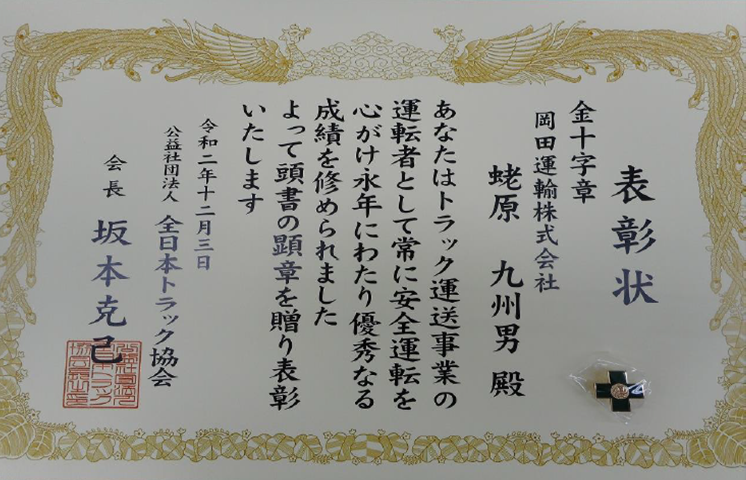 表彰状
金十字章
岡田運輸株式会社
蛯原 九州男 殿
あなたはトラック運送事業の
運転者として常に安全運転を
心がけ永年にわたり優秀なる
成績を修められました
よって頭書の顕章を贈り表彰
いたします
令和二年十二月三日
公益社団法人 全日本トラック協会
会長 坂本克己